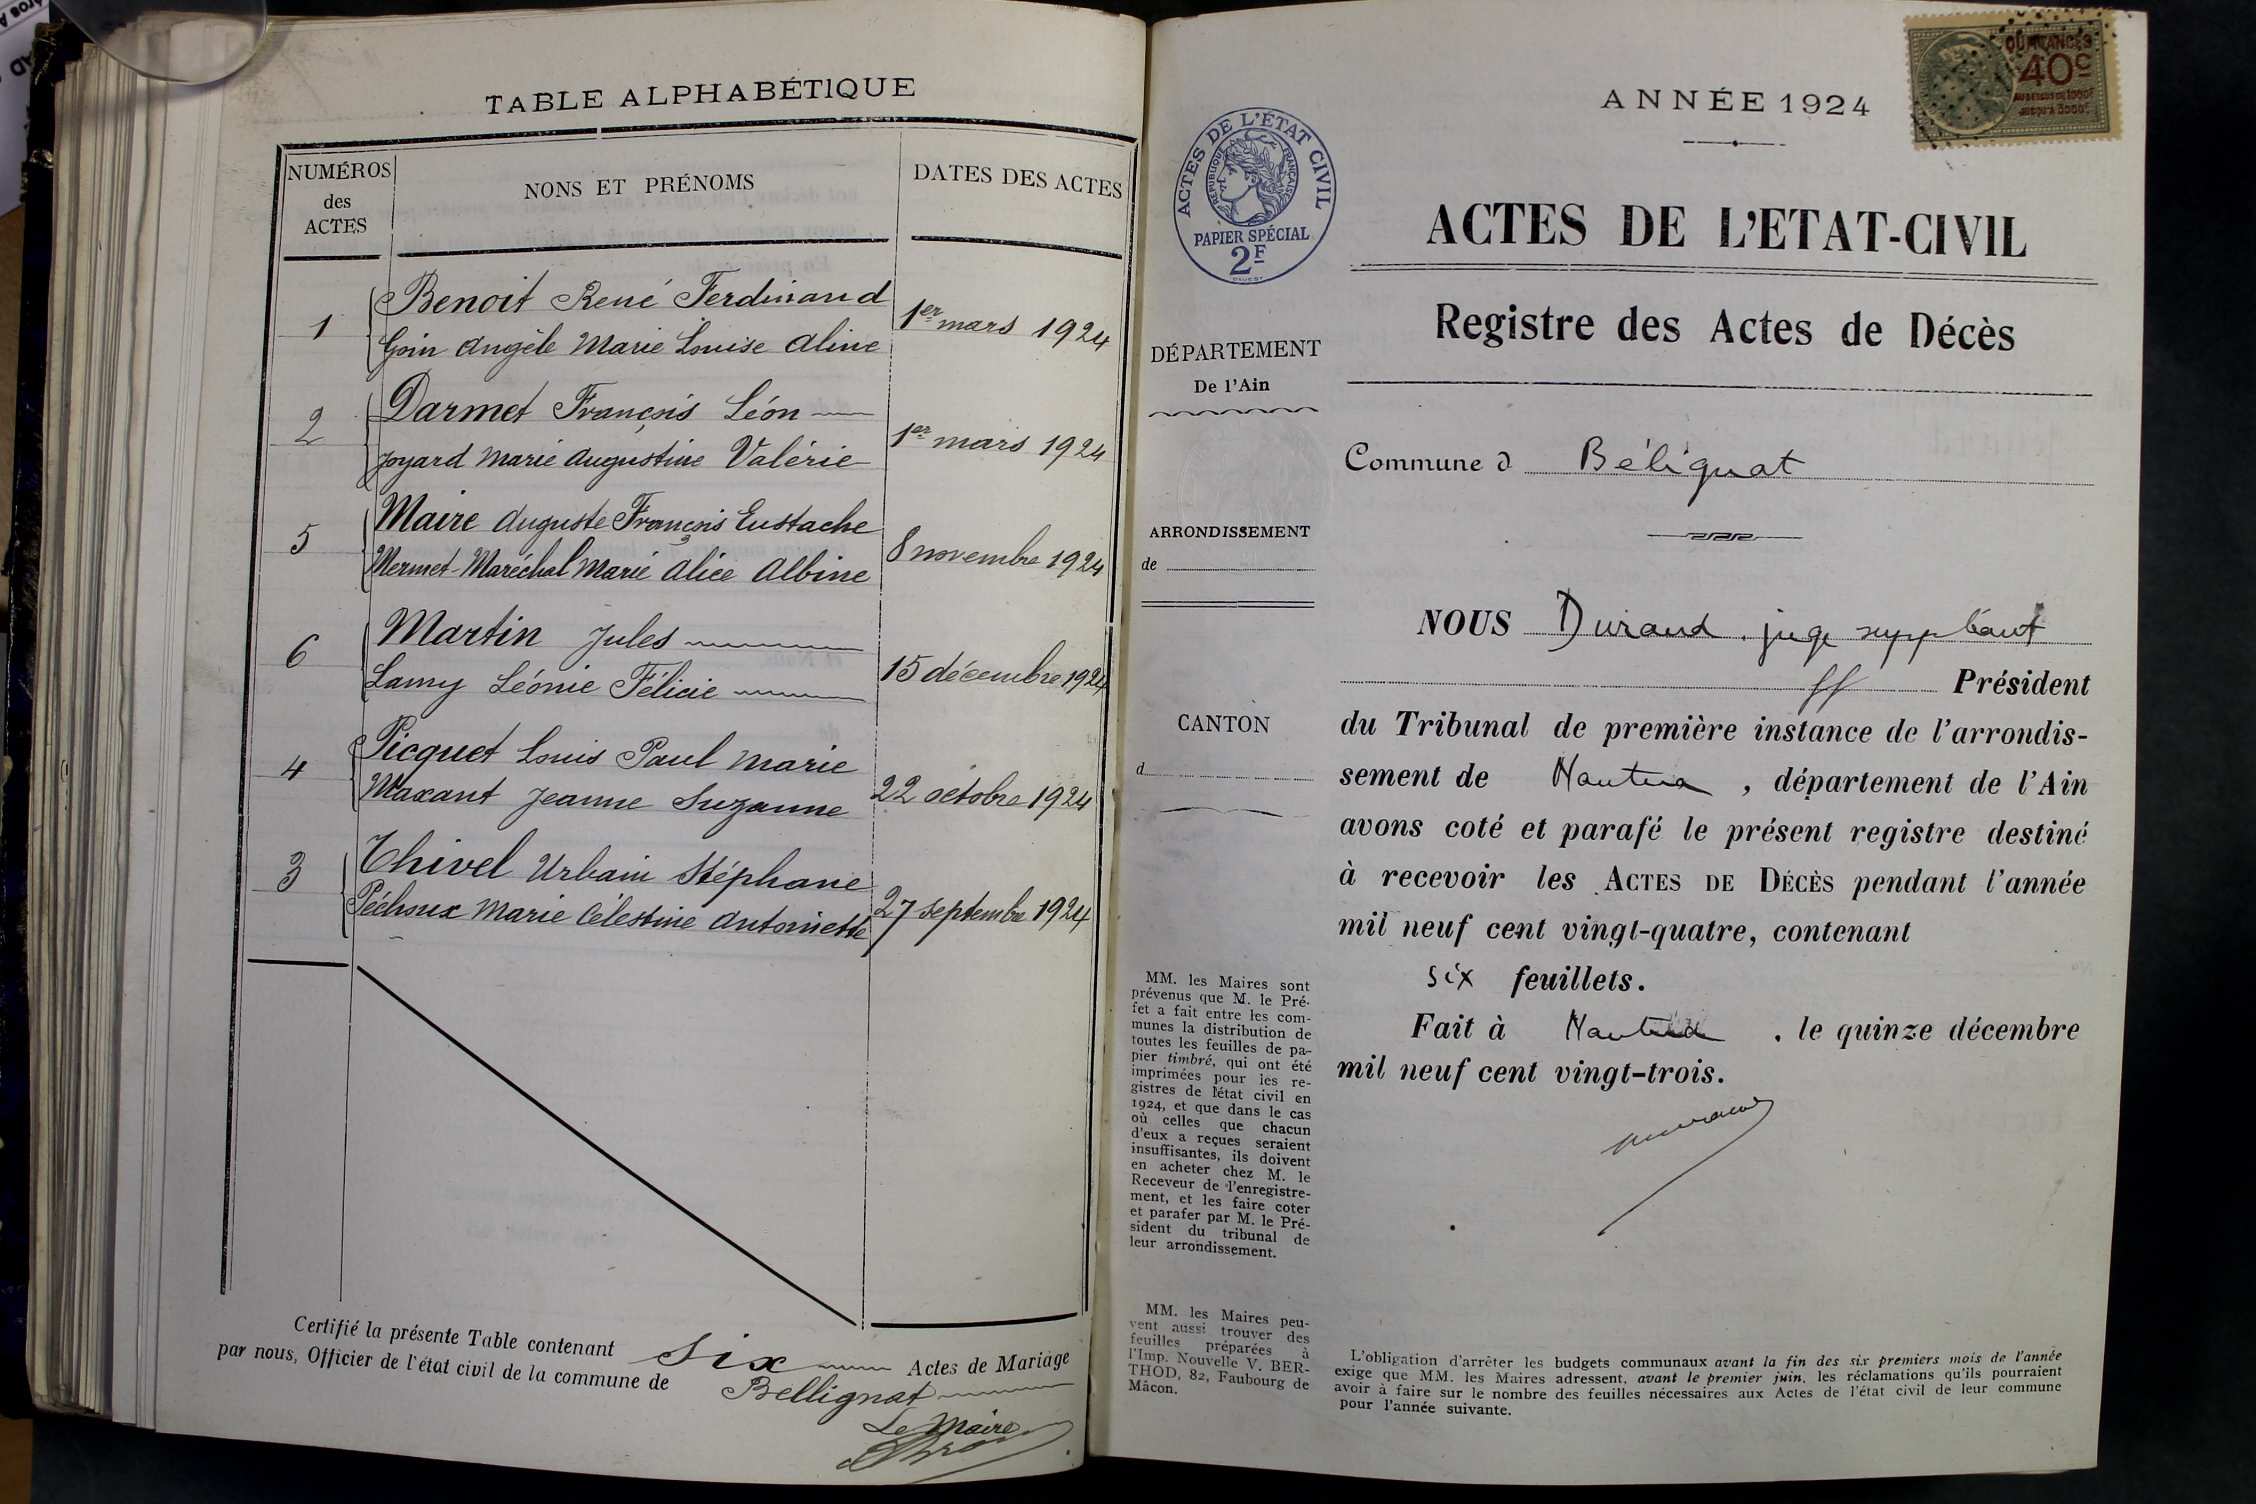 TABLE ALPHABÉTIQUE
NUMÉROS
des
ACTES
NONS ET PRÉNOMS
DATES DES ACTES
1
Benoit René Ferdinand
Goin Angèle Marie Louise Aline
1er mars 1924
2
Darmet François Léon
Joyard Marie Augustine Valérie
1er mars 1924
5
Maire Auguste François Eustache
Mermet-Maréchal Marie Alice Albine
8 novembre 1924
6
Martin Jules
Lamy Léonie Félicie
15 décembre 1924
4
Picquet Louis Paul Marie
Maxant Jeanne Suzanne
22 octobre 1924
3
Thivel Urbain Stéphane
Péchoux Marie Célestine Antoinette
27 septembre 1924
Certifié la présente Table contenant six Actes de Mariage
par nous, Officier de l'état civil de la commune de Bellignat
Le Maire
ANNÉE 1924
QUITTANCES
40c
AU DESSUS DE 1000F
JUSQU'A 3000F
ACTES DE L'ÉTAT CIVIL
RÉPUBLIQUE FRANÇAISE
PAPIER SPÉCIAL
2F
ACTES DE L'ETAT-CIVIL
Registre des Actes de Décès
DÉPARTEMENT
De l'Ain
Commune d Bélignat
ARRONDISSEMENT
de
CANTON
d
NOUS Durand juge suppléant
ff Président
du Tribunal de première instance de l'arrondis-
sement de Nantua, département de l'Ain
avons coté et parafé le présent registre destiné
à recevoir les ACTES DE DÉCÈS pendant l'année
mil neuf cent vingt-quatre, contenant
six feuillets.
Fait à Nantua, le quinze décembre
mil neuf cent vingt-trois.
MM. les Maires sont
prévenus que M. le Pré-
fet a fait entre les com-
munes la distribution de
toutes les feuilles de pa-
pier timbré, qui ont été
imprimées pour les re-
gistres de l'état civil en
1924, et que dans le cas
où celles que chacun
d'eux a reçues seraient
insuffisantes, ils doivent
en acheter chez M. le
Receveur de l'enregistre-
ment, et les faire coter
et parafer par M. le Pré-
sident du tribunal de
leur arrondissement.
MM. les Maires peu-
vent aussi trouver des
feuilles préparées à
l'Imp. Nouvelle V. BER-
THOD, 82, Faubourg de
Mâcon.
L'obligation d'arrêter les budgets communaux avant la fin des six premiers mois de l'année
exige que MM. les Maires adressent, avant le premier juin, les réclamations qu'ils pourraient
avoir à faire sur le nombre des feuilles nécessaires aux Actes de l'état civil de leur commune
pour l'année suivante.